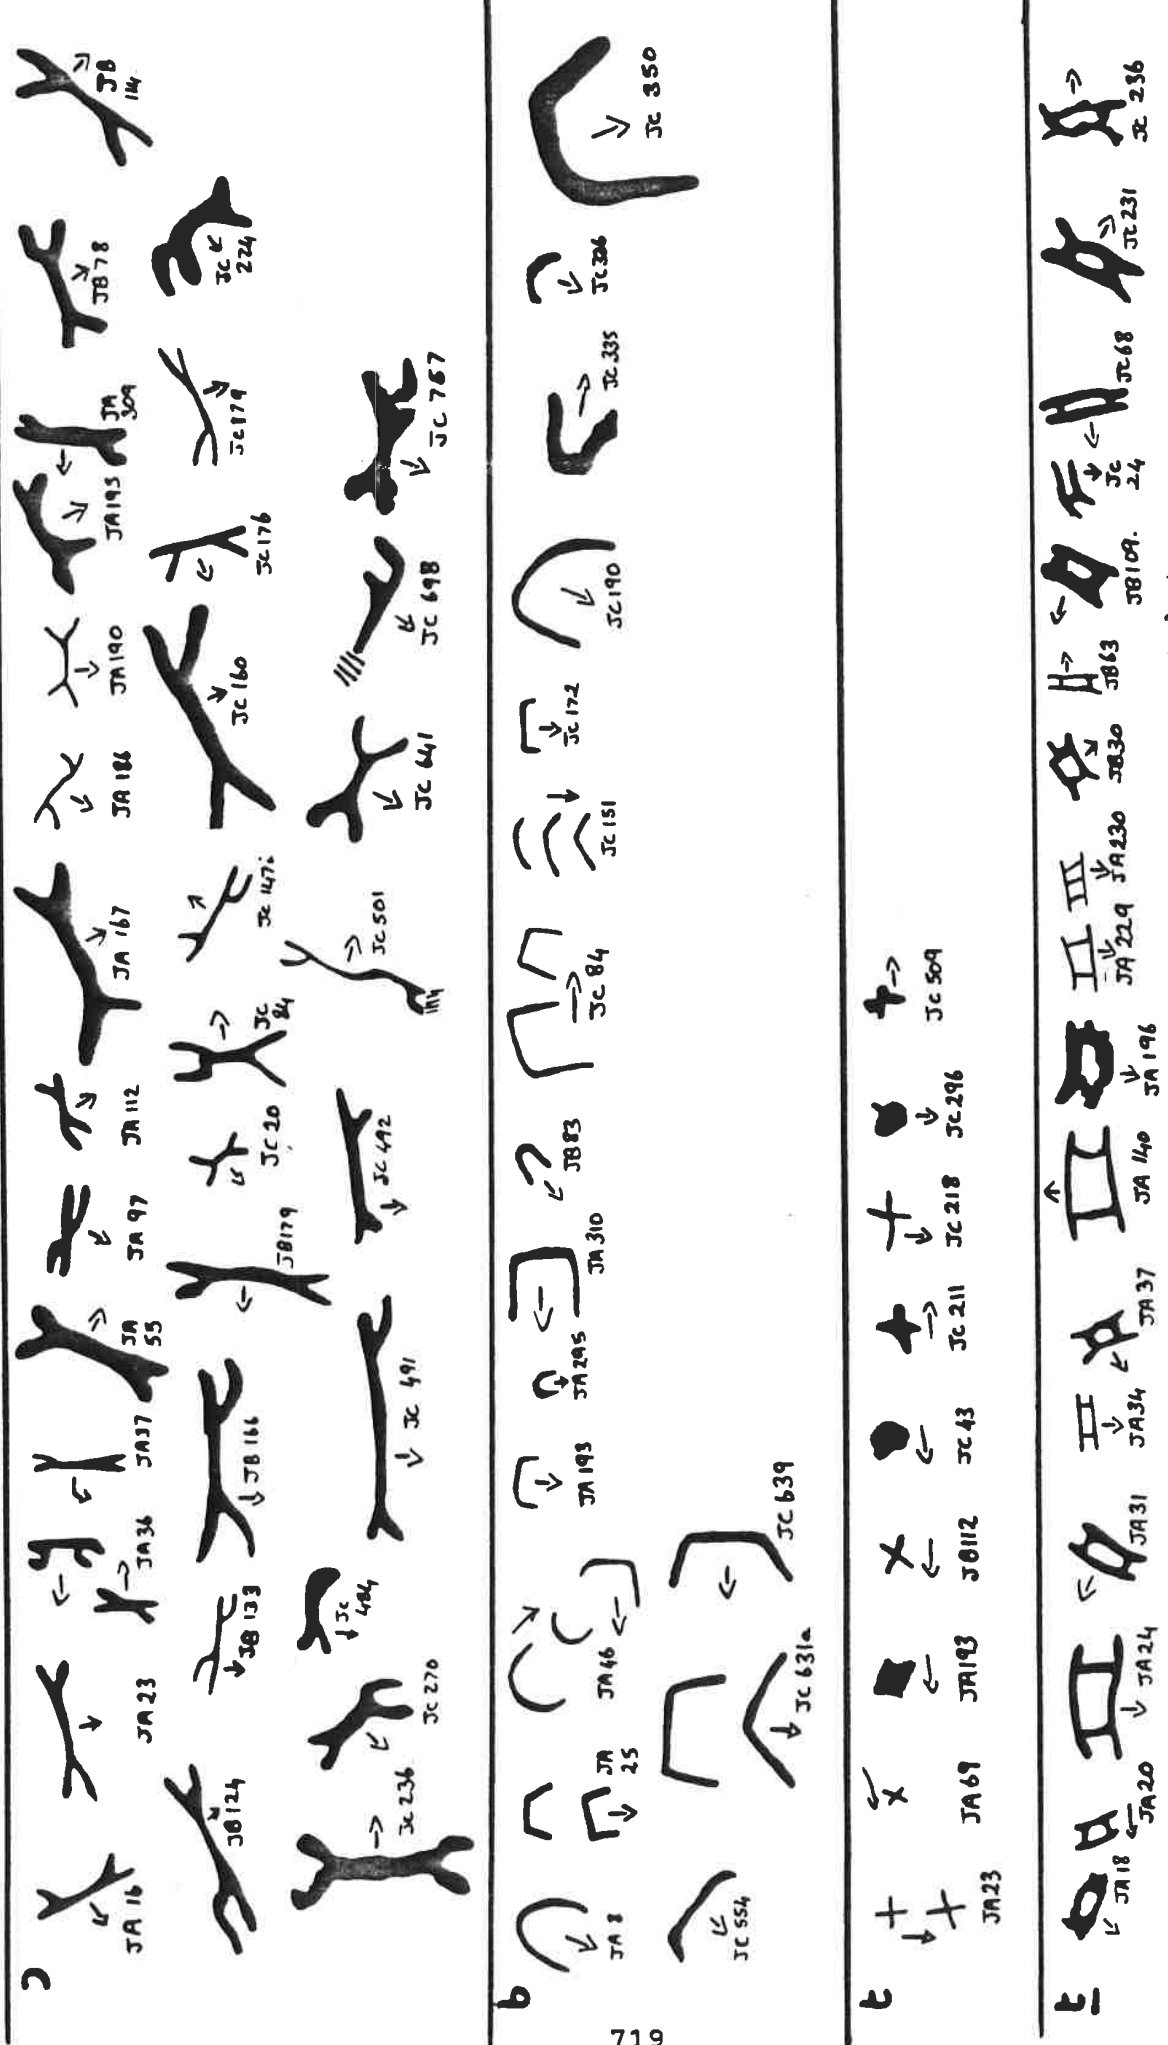 JA 16
JA23
JA36
JA37
JA
55
JA97
JA112
JA 167
JA 186
JA190
JA195
JA
309
JB78
JB
114
JB124
JB 133
JB 166
JB179
JC 20
JC
84
JC160
JC176
JC179
JC
224
JC236
JC 270
JC
484
JC 491
JC 492
JC501
JC 641
JC 698
JC 767
b
JA 8
JA
25
JA46
JA 193
JA295
JA 310
JB 83
JC 84
JC 151
JC 172
JC190
JC335
JC326
JC 350
JC 554
JC 631a
JC 639
JA23
JA69
JA193
JB112
JC 43
JC 211
JC 218
JC296
JC 509
JA18
JA20
JA24
JA31
JA34
JA37
JA 140
JA 196
JA 229
JA230
JB30
JB63
JB109.
JC
24
JC68
JC231
JC 236
719